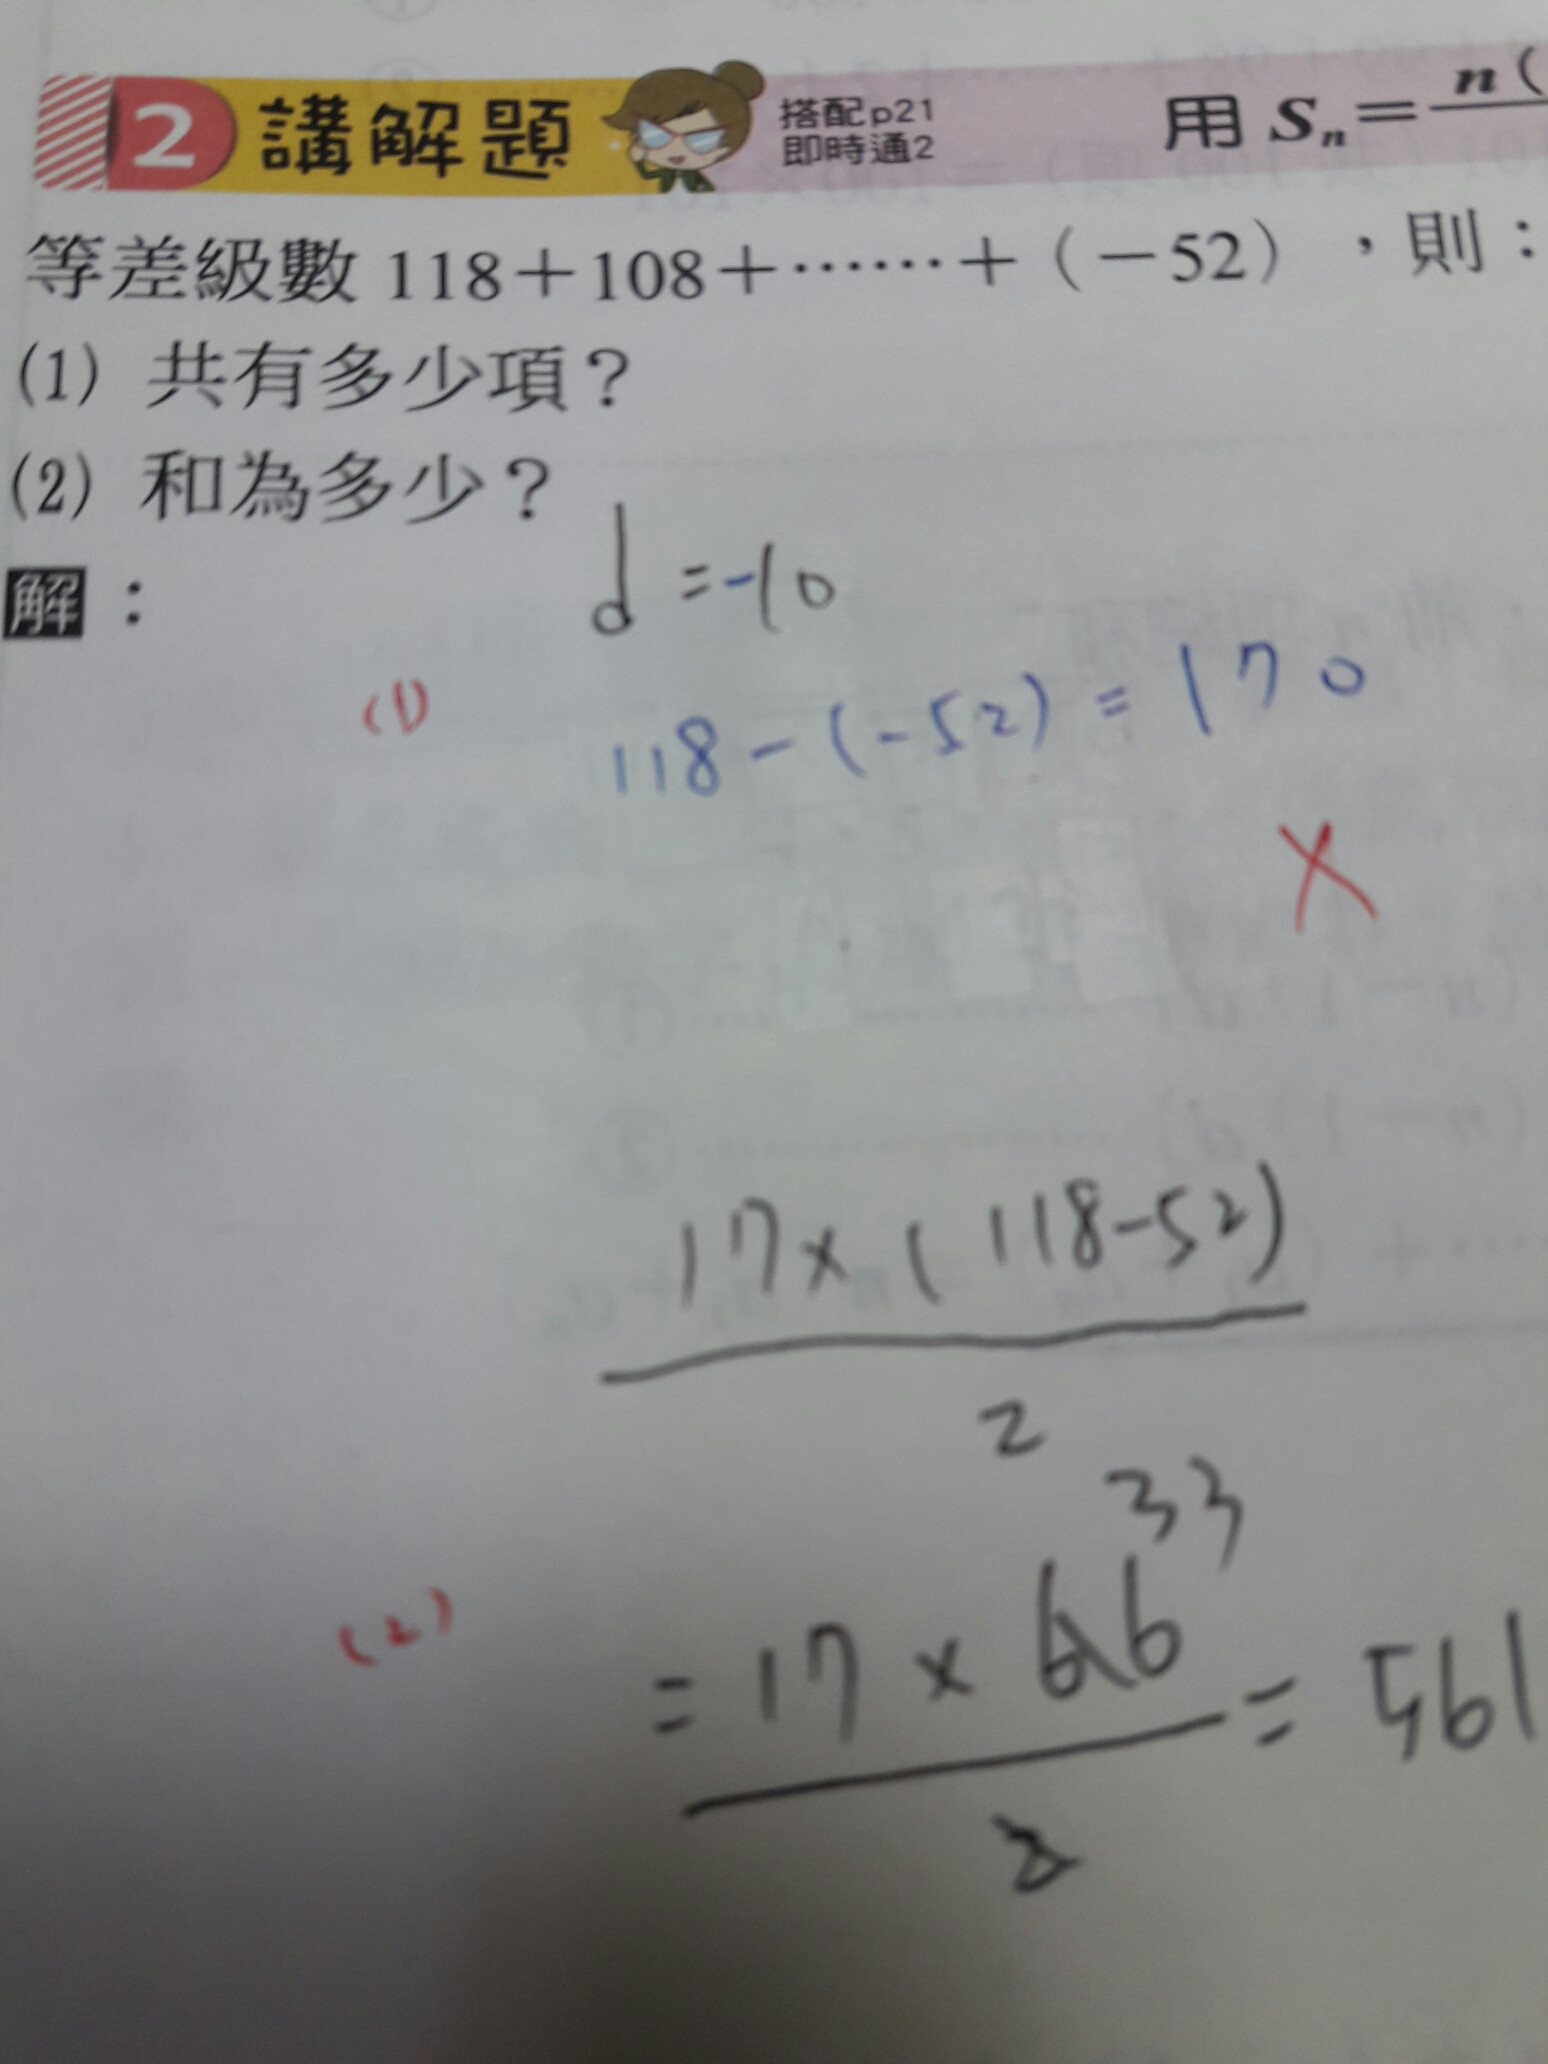 2 講解題 搭配p21 用 Sₙ=n(
即時通2
等差級數 118+108+……+(-52),則:
(1) 共有多少項?
(2) 和為多少?
解:
d = -10
(1) 118-(-52) = 170
X
17×(118-52)
2
33
(2) = 17×66 = 561
2